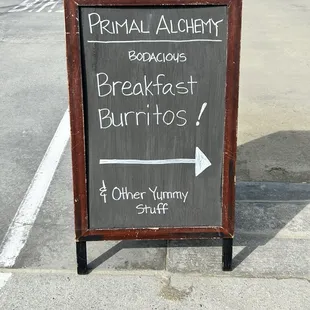 PRIMAL ALCHEMY
BODACIOUS
Breakfast
Burritos!
& Other Yummy
Stuff